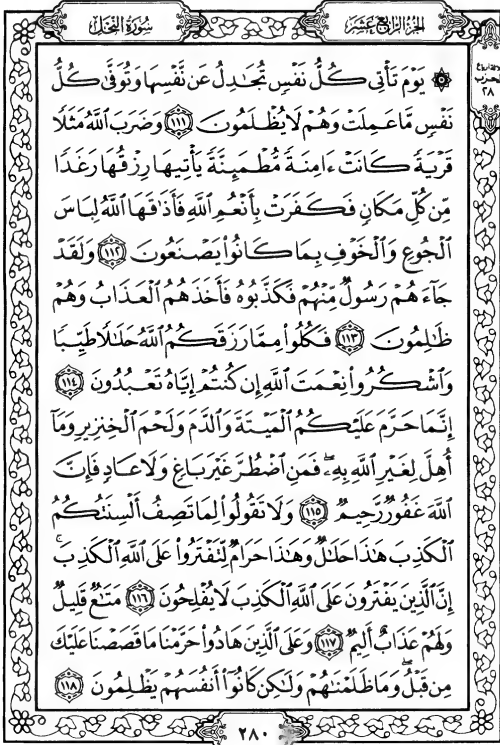 سُورَةُ النَّحْلِ
الجُزْءُ الرَّابِعَ عَشَرَ
۞ يَوْمَ تَأْتِي كُلُّ نَفْسٍ تُجَٰدِلُ عَن نَّفْسِهَا وَتُوَفَّىٰ كُلُّ
نَفْسٍ مَّا عَمِلَتْ وَهُمْ لَا يُظْلَمُونَ ١١١ وَضَرَبَ ٱللَّهُ مَثَلًا
قَرْيَةً كَانَتْ ءَامِنَةً مُّطْمَئِنَّةً يَأْتِيهَا رِزْقُهَا رَغَدًا
مِّن كُلِّ مَكَانٍ فَكَفَرَتْ بِأَنْعُمِ ٱللَّهِ فَأَذَٰقَهَا ٱللَّهُ لِبَاسَ
ٱلْجُوعِ وَٱلْخَوْفِ بِمَا كَانُوا۟ يَصْنَعُونَ ١١٢ وَلَقَدْ
جَآءَهُمْ رَسُولٌ مِّنْهُمْ فَكَذَّبُوهُ فَأَخَذَهُمُ ٱلْعَذَابُ وَهُمْ
ظَٰلِمُونَ ١١٣ فَكُلُوا۟ مِمَّا رَزَقَكُمُ ٱللَّهُ حَلَٰلًا طَيِّبًا
وَٱشْكُرُوا۟ نِعْمَتَ ٱللَّهِ إِن كُنتُمْ إِيَّاهُ تَعْبُدُونَ ١١٤
إِنَّمَا حَرَّمَ عَلَيْكُمُ ٱلْمَيْتَةَ وَٱلدَّمَ وَلَحْمَ ٱلْخِنزِيرِ وَمَآ
أُهِلَّ لِغَيْرِ ٱللَّهِ بِهِۦ ۖ فَمَنِ ٱضْطُرَّ غَيْرَ بَاغٍ وَلَا عَادٍ فَإِنَّ
ٱللَّهَ غَفُورٌ رَّحِيمٌ ١١٥ وَلَا تَقُولُوا۟ لِمَا تَصِفُ أَلْسِنَتُكُمُ
ٱلْكَذِبَ هَٰذَا حَلَٰلٌ وَهَٰذَا حَرَامٌ لِّتَفْتَرُوا۟ عَلَى ٱللَّهِ ٱلْكَذِبَ ۚ
إِنَّ ٱلَّذِينَ يَفْتَرُونَ عَلَى ٱللَّهِ ٱلْكَذِبَ لَا يُفْلِحُونَ ١١٦ مَتَٰعٌ قَلِيلٌ
وَلَهُمْ عَذَابٌ أَلِيمٌ ١١٧ وَعَلَى ٱلَّذِينَ هَادُوا۟ حَرَّمْنَا مَا قَصَصْنَا عَلَيْكَ
مِن قَبْلُ ۖ وَمَا ظَلَمْنَٰهُمْ وَلَٰكِن كَانُوٓا۟ أَنفُسَهُمْ يَظْلِمُونَ ١١٨
٢٨٠
الحزب
٢٨